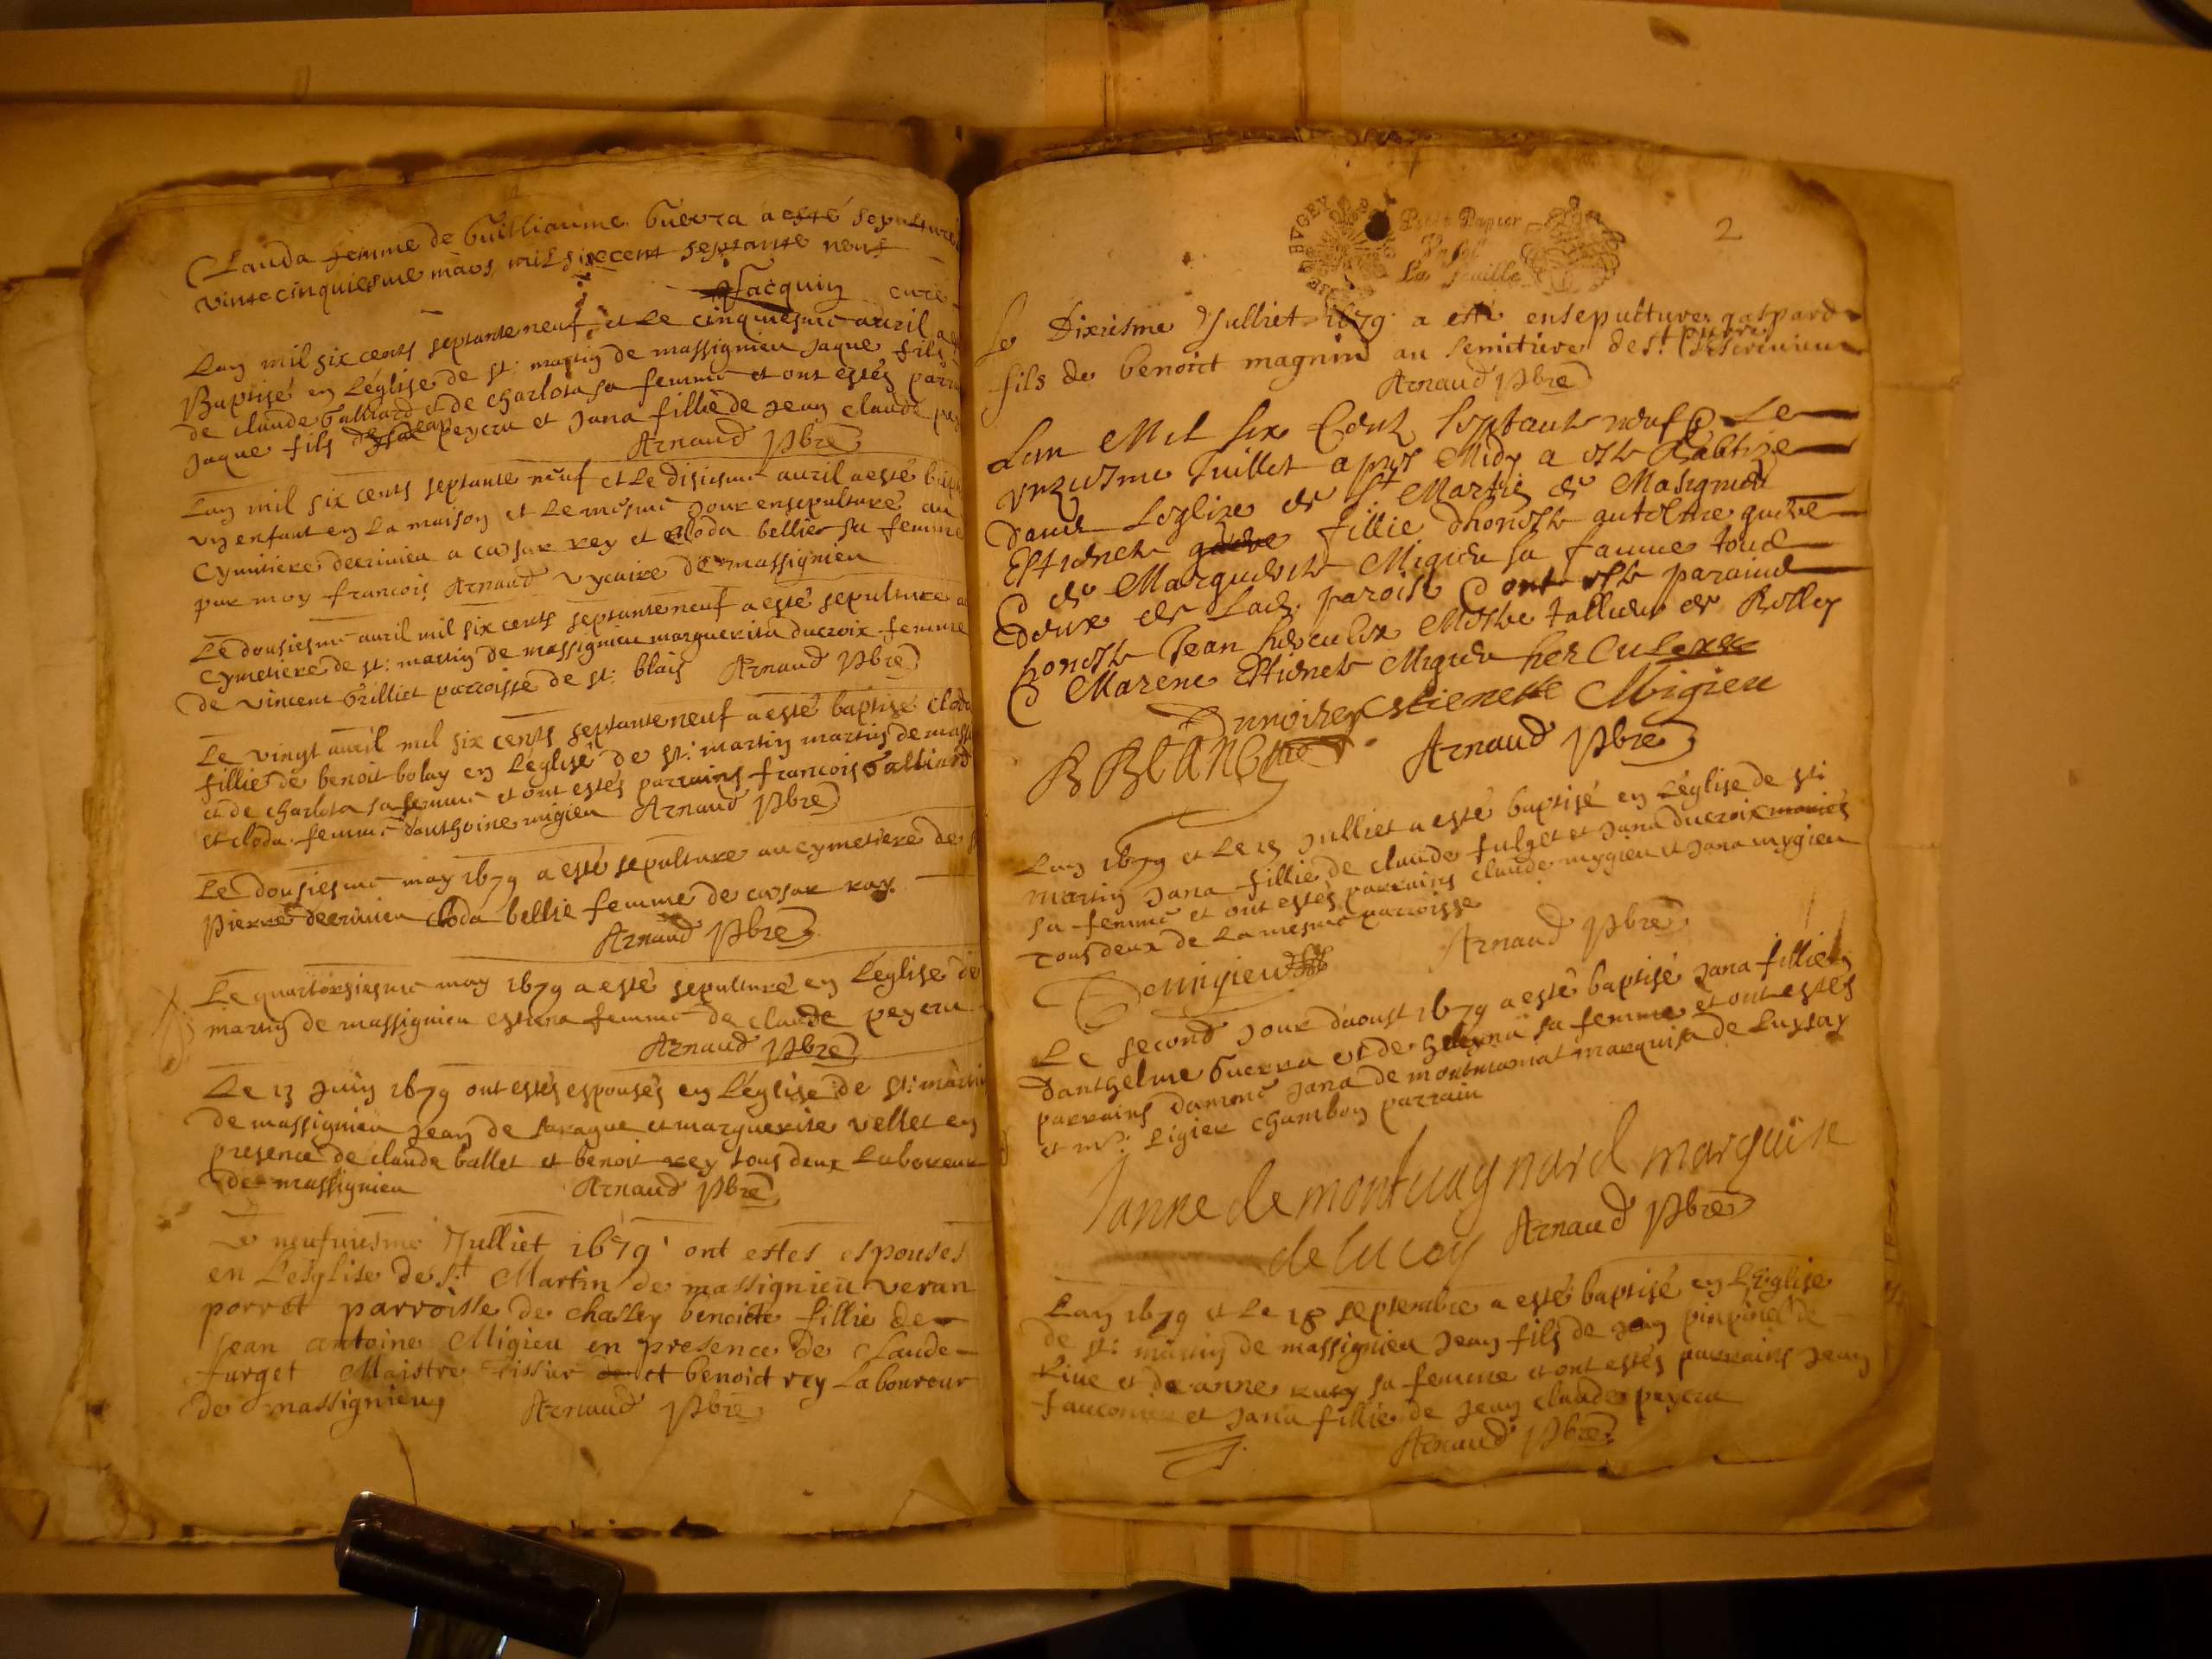 Clauda femme de Guilliaume Guerra a esté sepulturé
vinte cinquiesme mars mil six cent septante neuf
Jacquin curé
Lan mil six cents septante neuf et Le cinquiesme auril a
Baptisé en Léglise de st: martin de massignieu Jaque fils
de claude Galliard et de charlota sa femme et ont estés parr
Jaque fils de Jean peycru et Jana fillie de Jean claude pey
Arnaud pbre
Lan mil six cents septante neuf et Le disiesme auril a esté bap
un enfant en La maison et Le mesme Jour ensepulturé au
Cymitiere decrinieu a cæsar rey et Cloda bellier sa femme
par moy francois Arnaud vycaire de massignieu
Le dousiesme auril mil six cents septante neuf a esté sepulture a
Cymetiere de st: martin de massignieu marguerita ducroix femme
de vincent Grilliet parroisse de st: blais Arnaud pbre
Le vingt auril mil six cents septante neuf a esté baptisé cloda
fillie de benoit bolay en Léglise de st: martin martin de mass
et de charlota sa femme et ont estés parrains francois Galliard
et cloda femme danthoine migieu Arnaud pbre
Le dousiesme may 1679 a esté sepulture au cymetiere de s
Pierre decrinieu cloda bellie femme de cæsar ray
Arnaud pbre
Le quartorsiesme may 1679 a esté sepulturé en Léglise de
martin de massignieu estiena femme de claude peycru
Arnaud pbre
Le 13 Juin 1679 ont estés espousés en Léglise de st: marti
de massignieu Jean de Laraque et marguerite vellet en
presence de claude ballet et benoit rey tous deux Laboreur
de massignieu Arnaud pbre
Le neufuiesme Julliet 1679 ont estes espouses
en Lesglise de St Martin de massignieu veran
porret parroisse de chasley benoicte fillie de
Jean antoine Migieu en presence de Claude
furget Maistre tissier de et benoict rey Laboureur
de massignieu Arnaud pbre
BVGEY
Petit Papier
La feuille
2
Le Dixiesme Julliet 1679 a esté ensepulture gaspard
fils de benoict magnin au Semitiere de st pierre
Arnaud pbre
Lan Mil six Cent Septante neuf & Le
unziesme Juillet apres Midy a este Baptize
dans Leglize de St Martin de Masignieu
Estienete fillie dhoneste antelme guerre
& de Marguerite Migieu sa famme tous
deux de Lad. paroise & ont este parains
honeste Jean
& Marene Estienete Migieu
Estienette Migieu
B BLANChe Arnaud pbre
Lan 1679 et Le 15 Julliet a esté baptisé en Léglise de st:
martin Jana fillie de claude fulget et Jana ducroix mariés
sa femme et ont estés parrains claude mygieu et Jana mygieu
Tous deux de La mesme parroisse
Arnaud pbre
C demigieu
Le second Jour daoust 1679 a esté baptisé Jana fillie
danthelme Guerra et de sa femme et ont estés
parrains damme Jana de montmonat marquisa de Luysay
et mr: Ligier chambon parrain
Janne de montuagnard marquise
de lucey Arnaud pbre
Lan 1679 et Le 18 septembre a esté baptisé en Léglise
de st: martin de massignieu Jean fils de Jean de
Riue et de anne sa femme et ont estés parrains Jean
fauconnier et Jana fillie de Jean claude peycru
Arnaud pbre